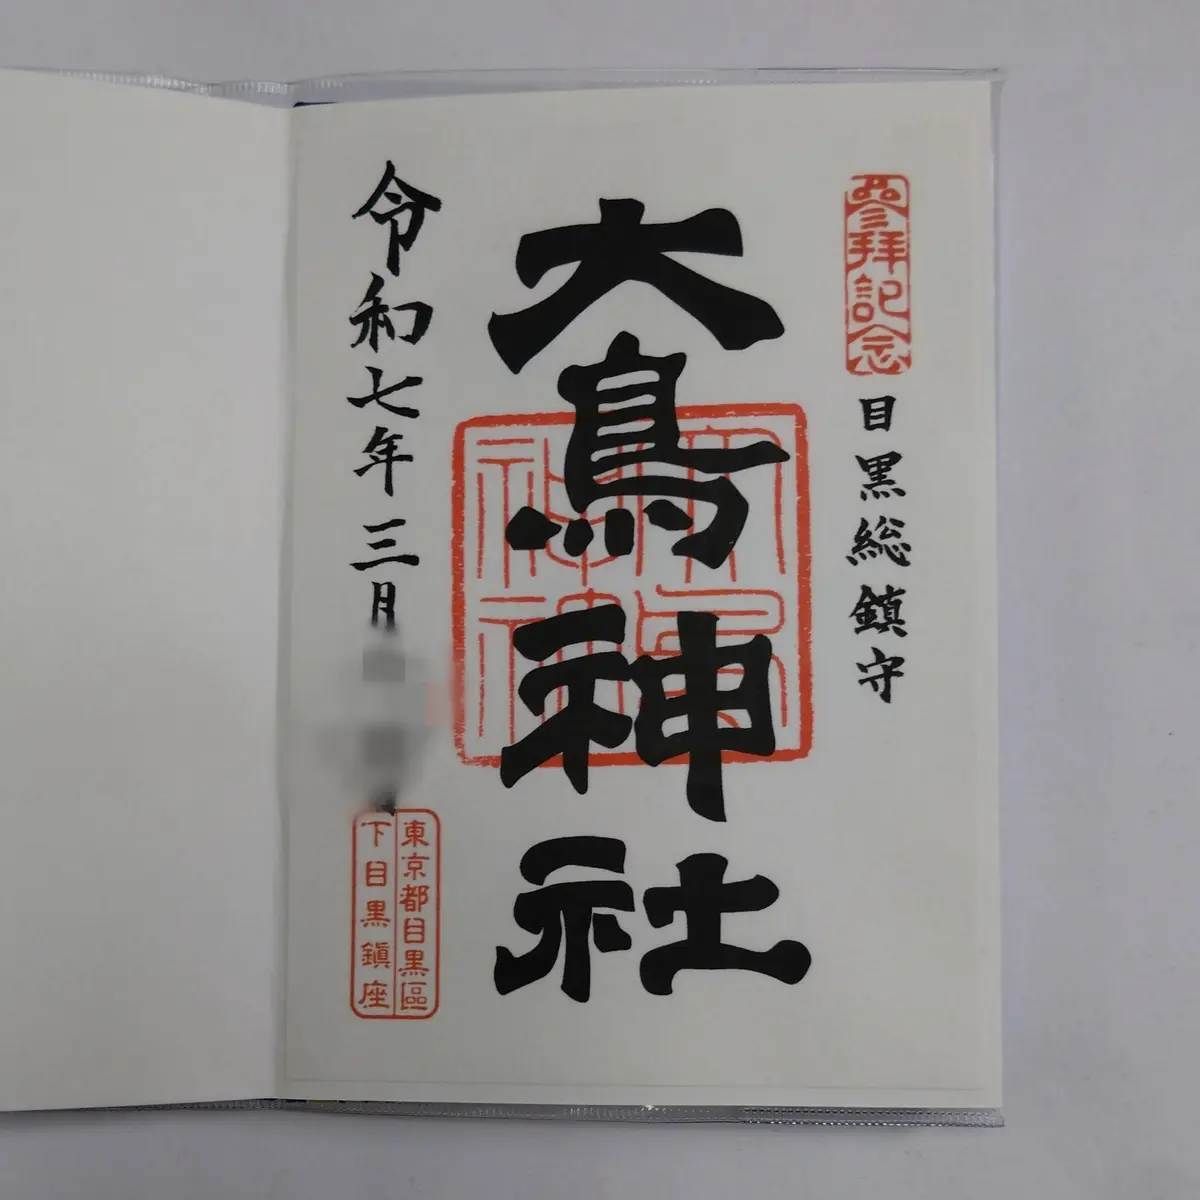 參拜記念
目黒総鎮守
大鳥神社
令和七年三月
東京都目黒區
下目黒鎮座